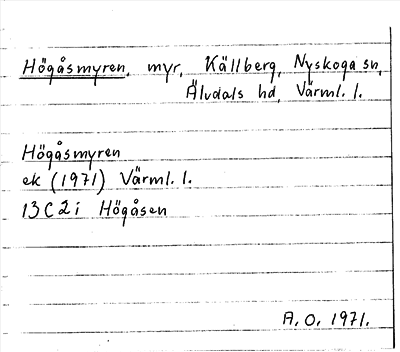 Högåsmyren, myr, Källberg, Nyskoga sn,
Älvdals hd, Värml. l.
Högåsmyren
ek (1971) Värml. l.
13C2i Högåsen
A.O. 1971.